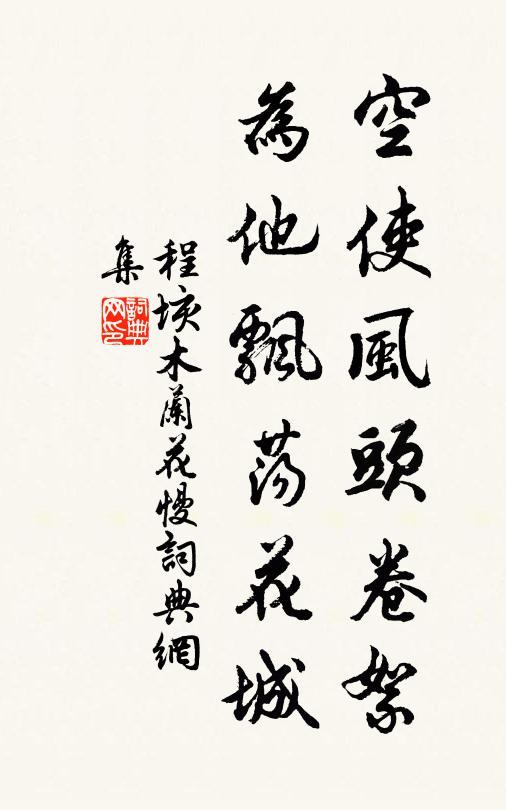 空使風頭卷絮
為他飄蕩花城
程垓木蘭花慢詞典網
集
詞典网印